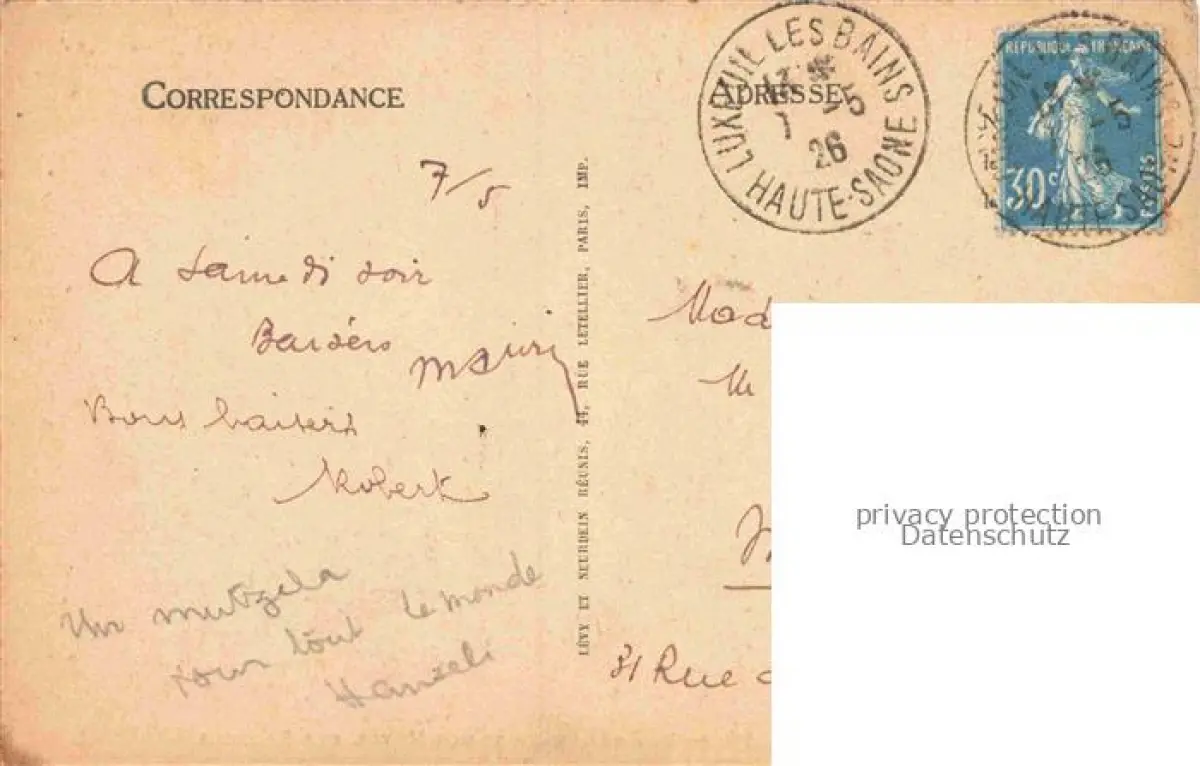 CORRESPONDANCE
ADRESSE
LUXEUIL LES BAINS
HAUTE-SAONE
-5
26
RÉPUBLIQUE FRANÇAISE
30c
POSTES
7/5
A samedi soir
Baisers
Bons baisers
Robert
Un mutzela
pour tout le monde
Hanseli
LÉVY ET NEURDEIN RÉUNIS, 44, RUE LETELLIER, PARIS, IMP.
Mad
M
31 Rue
privacy protection
Datenschutz